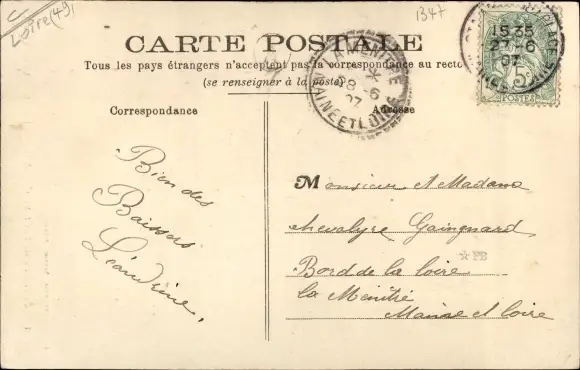 Loire (49)
1347
CARTE POSTALE
Tous les pays étrangers n'acceptent pas la correspondance au recto
(se renseigner à la poste)
Correspondance
Adresse
LA MENITRE
28 * 6
07
MAINE ET LOIRE
15 35
27 - 6
07
5c
POSTES
Bien des
Baisers
Léandrine,
Monsieur et Madame
chevalyre Gaingnard
Bord de la loire
la Menitré
Maine et loire
PB